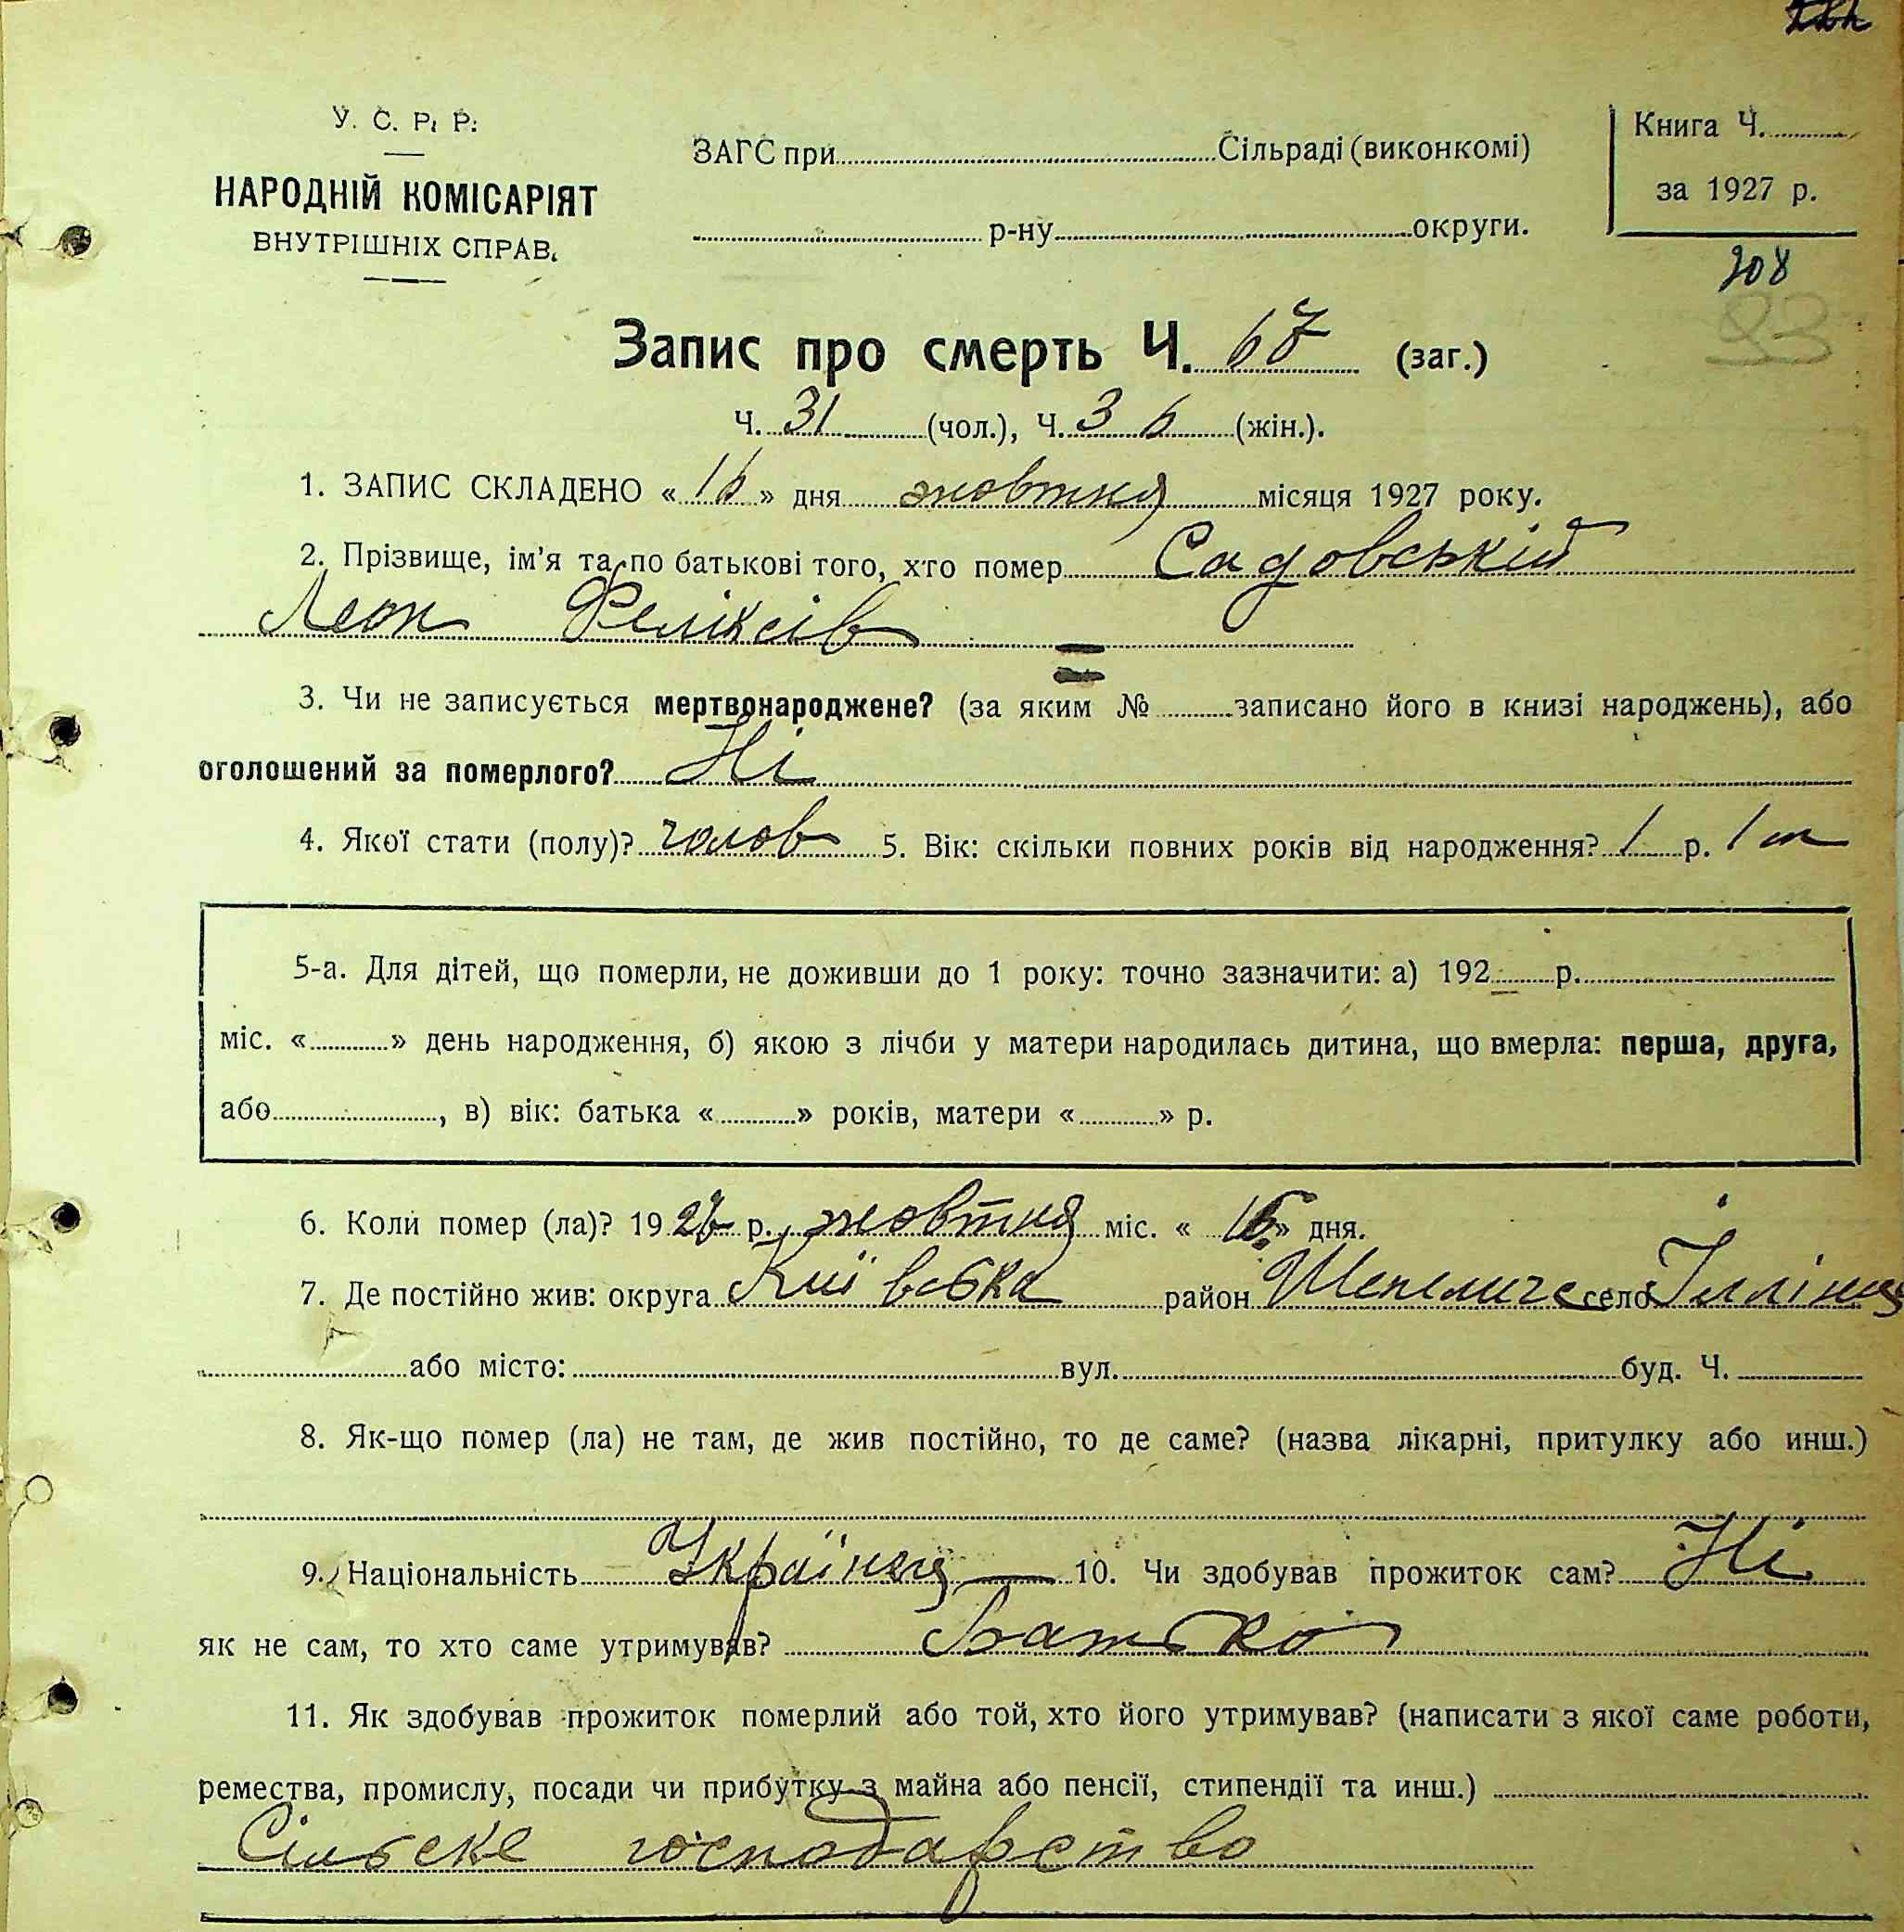 У. С. Р. Р.
НАРОДНІЙ КОМІСАРІЯТ
ВНУТРІШНІХ СПРАВ.
ЗАГС при Сільраді (виконкомі)
р-ну округи.
Книга Ч.
за 1927 р.
208
93
Запис про смерть Ч. 67 (заг.)
Ч. 31 (чол.), Ч. 36 (жін.).
1. ЗАПИС СКЛАДЕНО « 16 » дня жовтня місяця 1927 року.
2. Прізвище, ім'я та по батькові того, хто помер Садовський
Леон Феліксів
3. Чи не записується мертвонароджене? (за яким № записано його в книзі народжень), або
оголошений за померлого? Ні
4. Якої стати (полу)? чолов 5. Вік: скільки повних років від народження? 1 р. 1 м
5-а. Для дітей, що померли, не доживши до 1 року: точно зазначити: а) 192 р.
міс. « » день народження, б) якою з лічби у матери народилась дитина, що вмерла: перша, друга,
або , в) вік: батька « » років, матери « » р.
6. Коли помер (ла)? 1927 р. жовтня міс. « » дня.
7. Де постійно жив: округа Київська район Шепеличе село Іллінці
або місто: вул. буд. Ч.
8. Як-що помер (ла) не там, де жив постійно, то де саме? (назва лікарні, притулку або инш.)
9. Національність Українця 10. Чи здобував прожиток сам? Ні
як не сам, то хто саме утримував? Батько
11. Як здобував прожиток померлий або той, хто його утримував? (написати з якої саме роботи,
ремества, промислу, посади чи прибутку з майна або пенсії, стипендії та инш.)
Сільске господарство